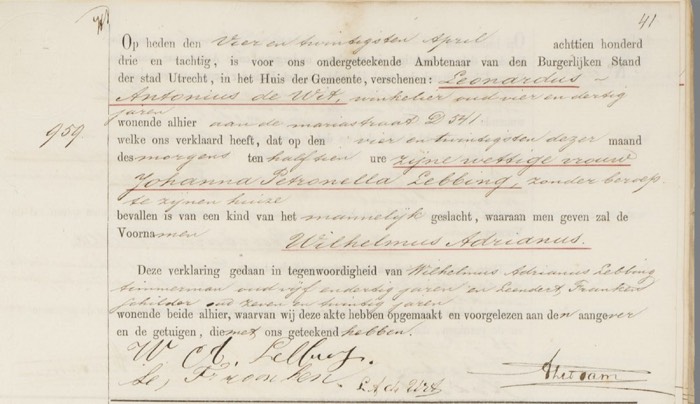 41
Op heden den Vier en twintigsten April achttien honderd
drie en tachtig, is voor ons ondergeteekende Ambtenaar van den Burgerlijken Stand
der stad Utrecht, in het Huis der Gemeente, verschenen: Leonardus
Antonius de Wit, winkelier oud vier en dertig
jaren
wonende alhier aan de mariastraat D 541.
959
welke ons verklaard heeft, dat op den vier en twintigsten dezer maand
des morgens ten half tien ure zijne wettige vrouw
Johanna Petronella Lebbing, zonder beroep
te zijnen huize
bevallen is van een kind van het mannelijk geslacht, waaraan men geven zal de
Voornamen Wilhelmus Adrianus.
Deze verklaring gedaan in tegenwoordigheid van Wilhelmus Adrianus Lebbing
timmerman oud vijf en dertig jaren en Leendert Franken
schilder oud zeven en twintig jaren
wonende beide alhier, waarvan wij deze akte hebben opgemaakt en voorgelezen aan den aangever
en de getuigen, die met ons geteekend hebben.
W A. Lebbing.
Le, Franken L A de Wit